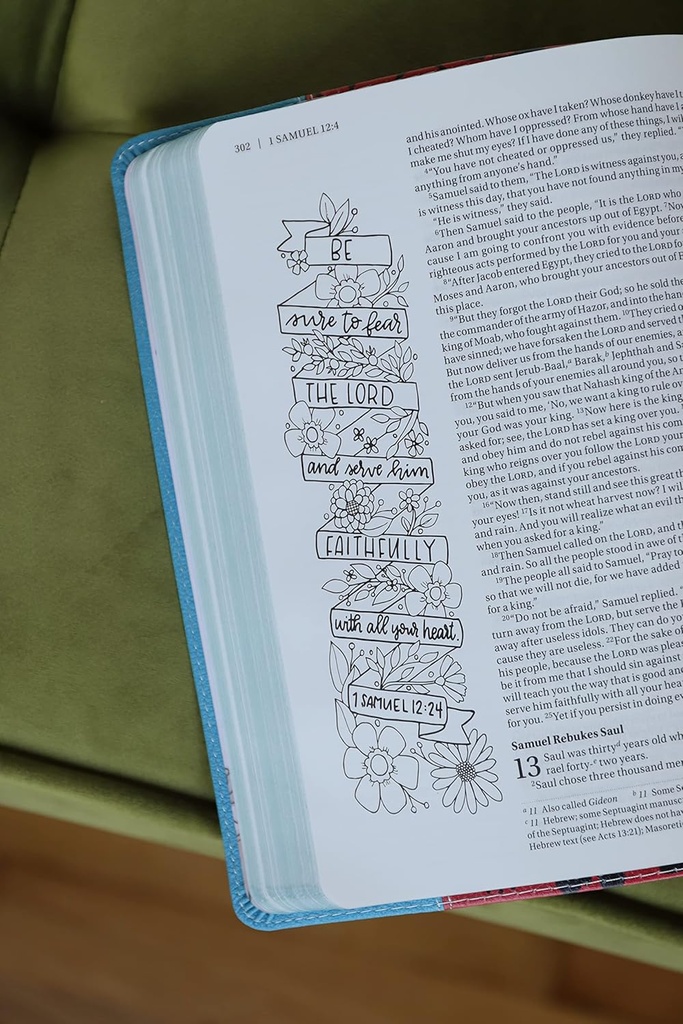 302 | 1 SAMUEL 12:4
BE
sure to fear
THE LORD
and serve him
FAITHFULLY
with all your heart.
1 SAMUEL 12:24
and his anointed. Whose ox have I taken? Whose donkey have I
I cheated? Whom have I oppressed? From whose hand have I
make me shut my eyes? If I have done any of these things, I
4“You have not cheated or oppressed us,” they replied.
anything from anyone’s hand.”
5Samuel said to them, “The LORD is witness against you,
is witness this day, that you have not found anything in
“He is witness,” they said.
6Then Samuel said to the people, “It is the LORD who
Aaron and brought your ancestors up out of Egypt. 7Now
cause I am going to confront you with evidence before
righteous acts performed by the LORD for you and your
8“After Jacob entered Egypt, they cried to the LORD for
Moses and Aaron, who brought your ancestors out of
this place.
9“But they forgot the LORD their God; so he sold
the commander of the army of Hazor, and into the
king of Moab, who fought against them. 10They cried
have sinned; we have forsaken the LORD and served
But now deliver us from the hands of our enemies,
the LORD sent Jerub-Baal,a Barak,b Jephthah and
from the hands of your enemies all around you, so
12“But when you saw that Nahash king of the
you, you said to me, ‘No, we want a king to rule
your God was your king. 13Now here is the king
asked for; see, the LORD has set a king over you.
and obey him and do not rebel against his
king who reigns over you follow the LORD your
obey the LORD, and if you rebel against his
you, as it was against your ancestors.
16“Now then, stand still and see this great
your eyes! 17Is it not wheat harvest now? I
and rain. And you will realize what an evil
when you asked for a king.”
18Then Samuel called on the LORD, and
and rain. So all the people stood in awe of
19The people all said to Samuel, “Pray to
so that we will not die, for we have added
for a king.”
20“Do not be afraid,” Samuel replied.
turn away from the LORD, but serve the
away after useless idols. They can do
cause they are useless. 22For the sake of
his people, because the LORD was
be it from me that I should sin against
will teach you the way that is good and
serve him faithfully with all your
for you. 25Yet if you persist in doing
Samuel Rebukes Saul
13 Saul was thirtyd years old
rael forty-e two years.
2Saul chose three thousand
a 11 Also called Gideon b 11 Some
c 11 Hebrew; some Septuagint
of the Septuagint; Hebrew does not
Hebrew text (see Acts 13:21);